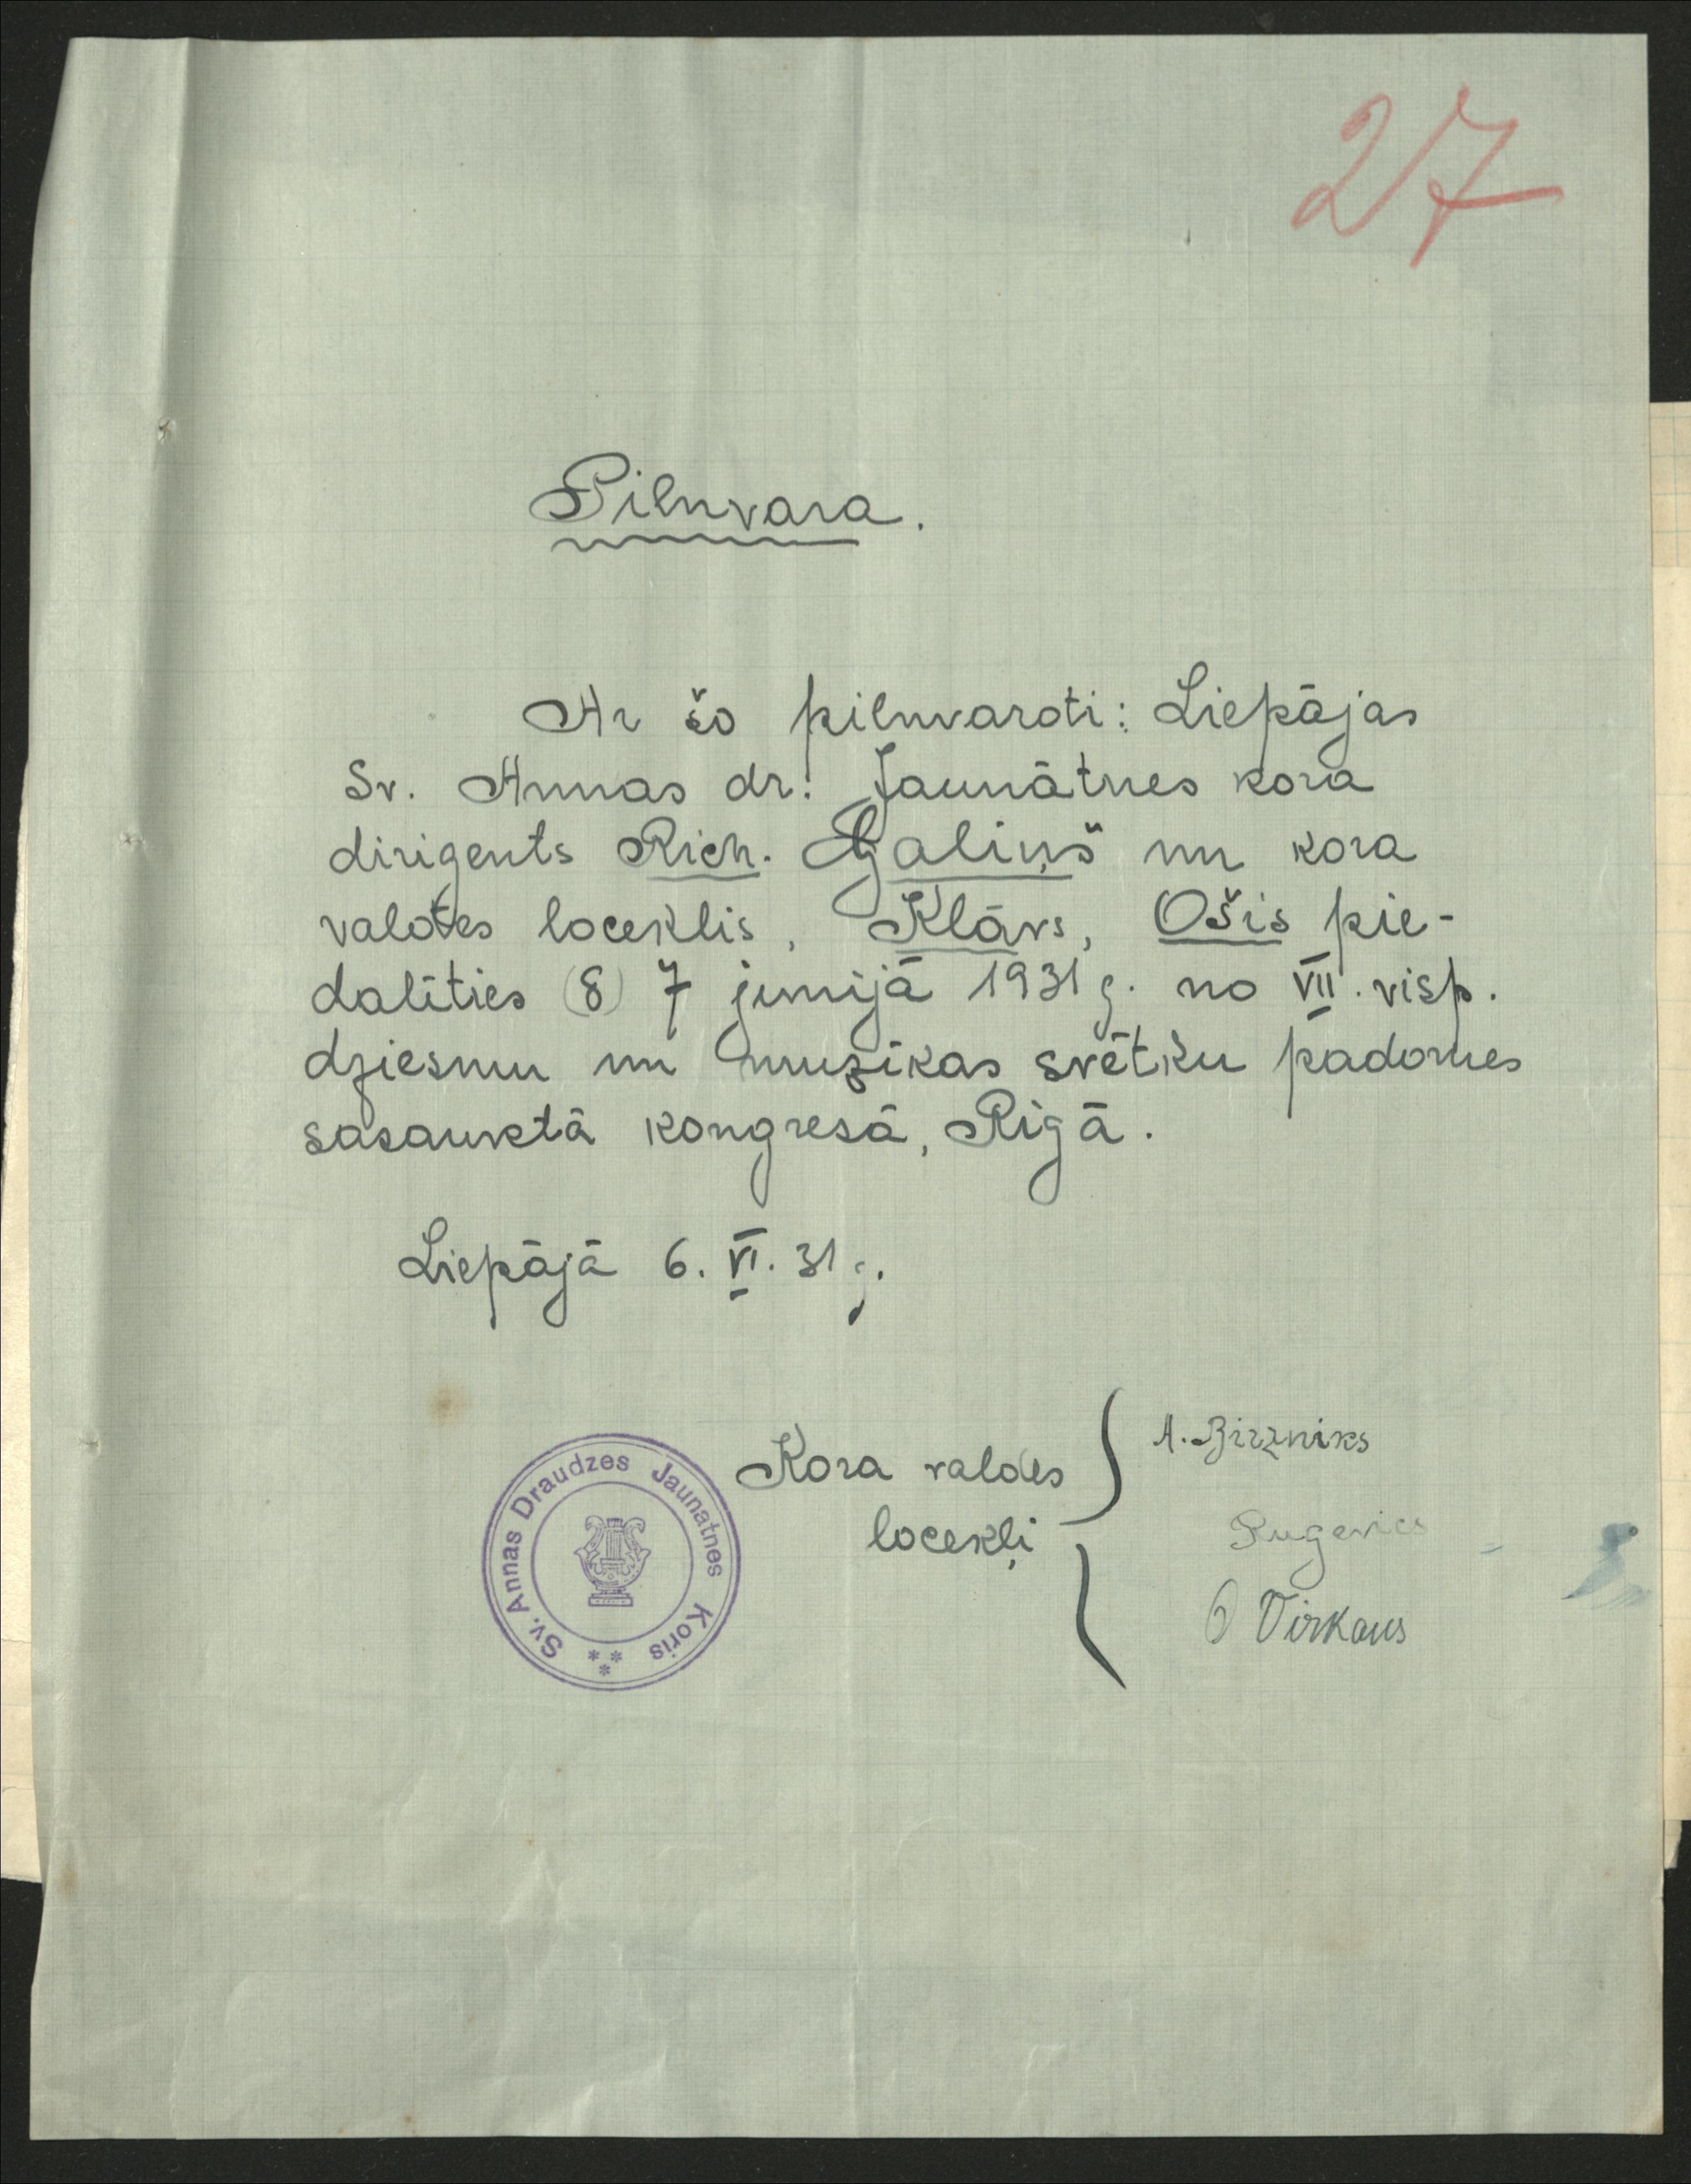 27
Pilnvara.
Ar šo pilnvaroti: Liepājas
Sv. Annas dr. Jaunātnes kora
dirigents Rich. Galiņš un kora
valdes loceklis, Klāvs, Ošis pie-
dalīties (8) 7 jūnijā 1931 g. no VII. visp.
dziesmu un muzikas svētku padomes
sasauktā kongresā, Rīgā.
Liepājā 6. VI. 31 g.
Kora valdes
locekļi
A. Birzniks
Pugevics
O Virkaus
Sv. Annas Draudzes Jaunatnes Koris